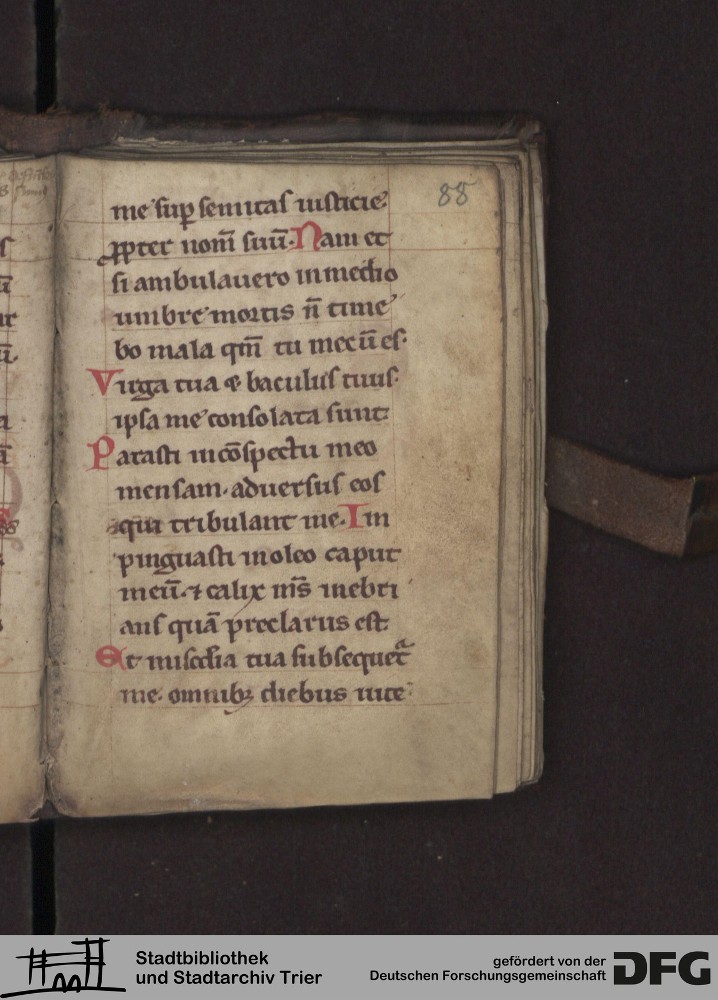 88
me sup semitas iusticie
ꝓpter nom̄ suū. Nam et
si ambulauero in medio
umbre mortis n̄ time
bo mala qm̄ tu mecū es.
Virga tua & baculus tuus.
ipsa me consolata sunt.
Parasti in cōspectu meo
mensam. aduersus eos
qui tribulant me. Im
pinguasti in oleo caput
meū. ⁊ calix m̄s inebri
ans quā preclarus est.
Et misc̄dia tua subsequet᷑
me. omnibꝫ diebus uite
Stadtbibliothek
und Stadtarchiv Trier
gefördert von der
Deutschen Forschungsgemeinschaft
DFG